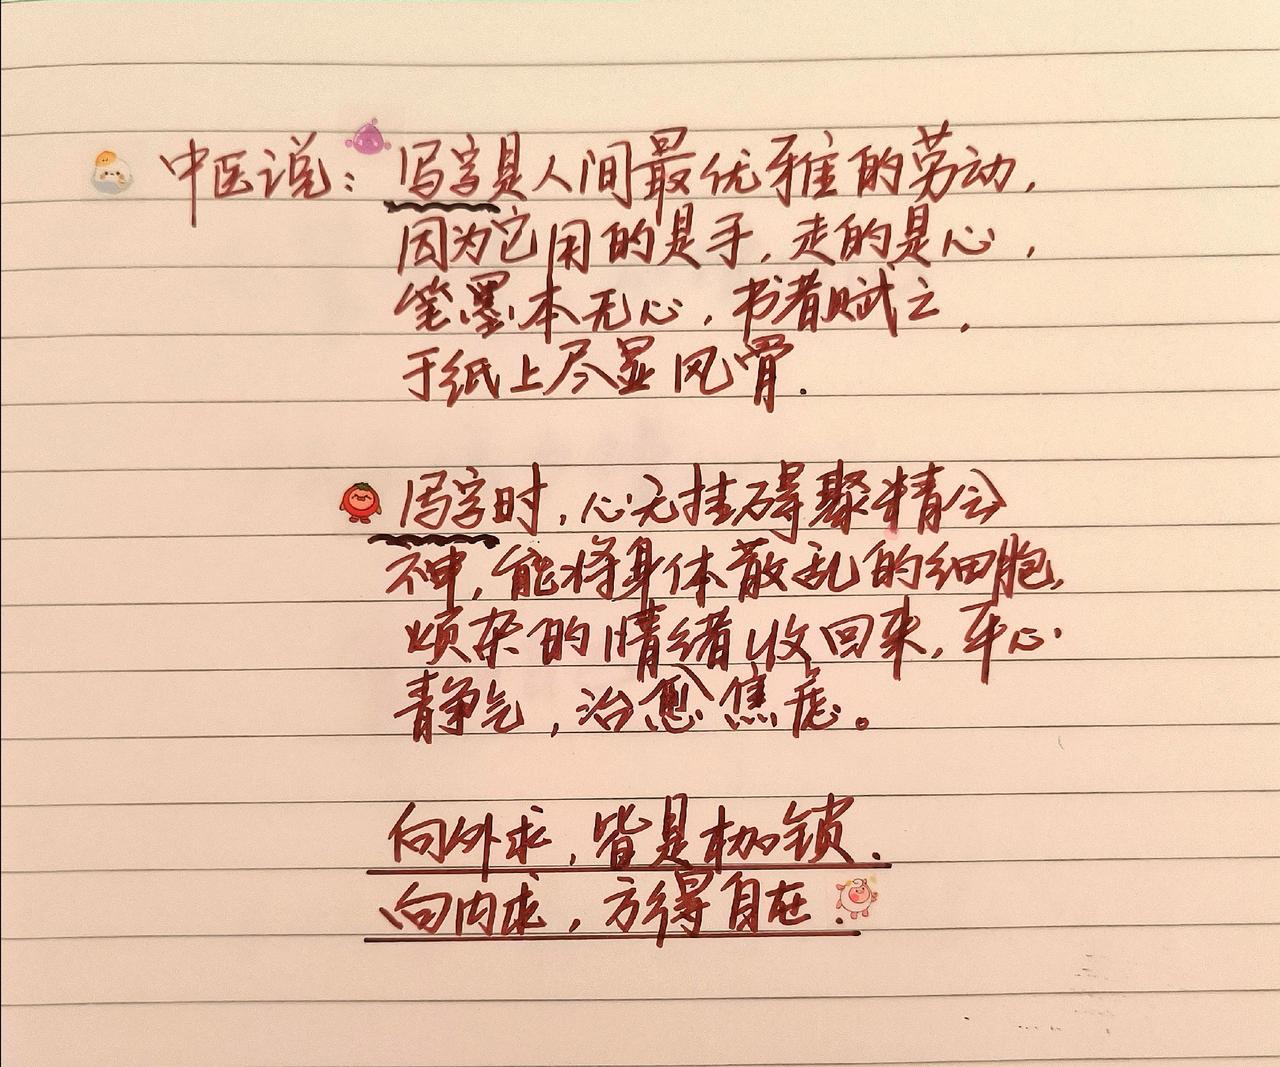 中医说：写字是人间最优雅的劳动，
因为它用的是手，走的是心，
笔墨本无心，书者赋之，
于纸上尽显风骨.
写字时，心无挂碍聚精会
神，能将身体散乱的细胞，
烦杂的情绪收回来，平心
静气，治愈焦虑。
向外求，皆是枷锁.
向内求，方得自在.